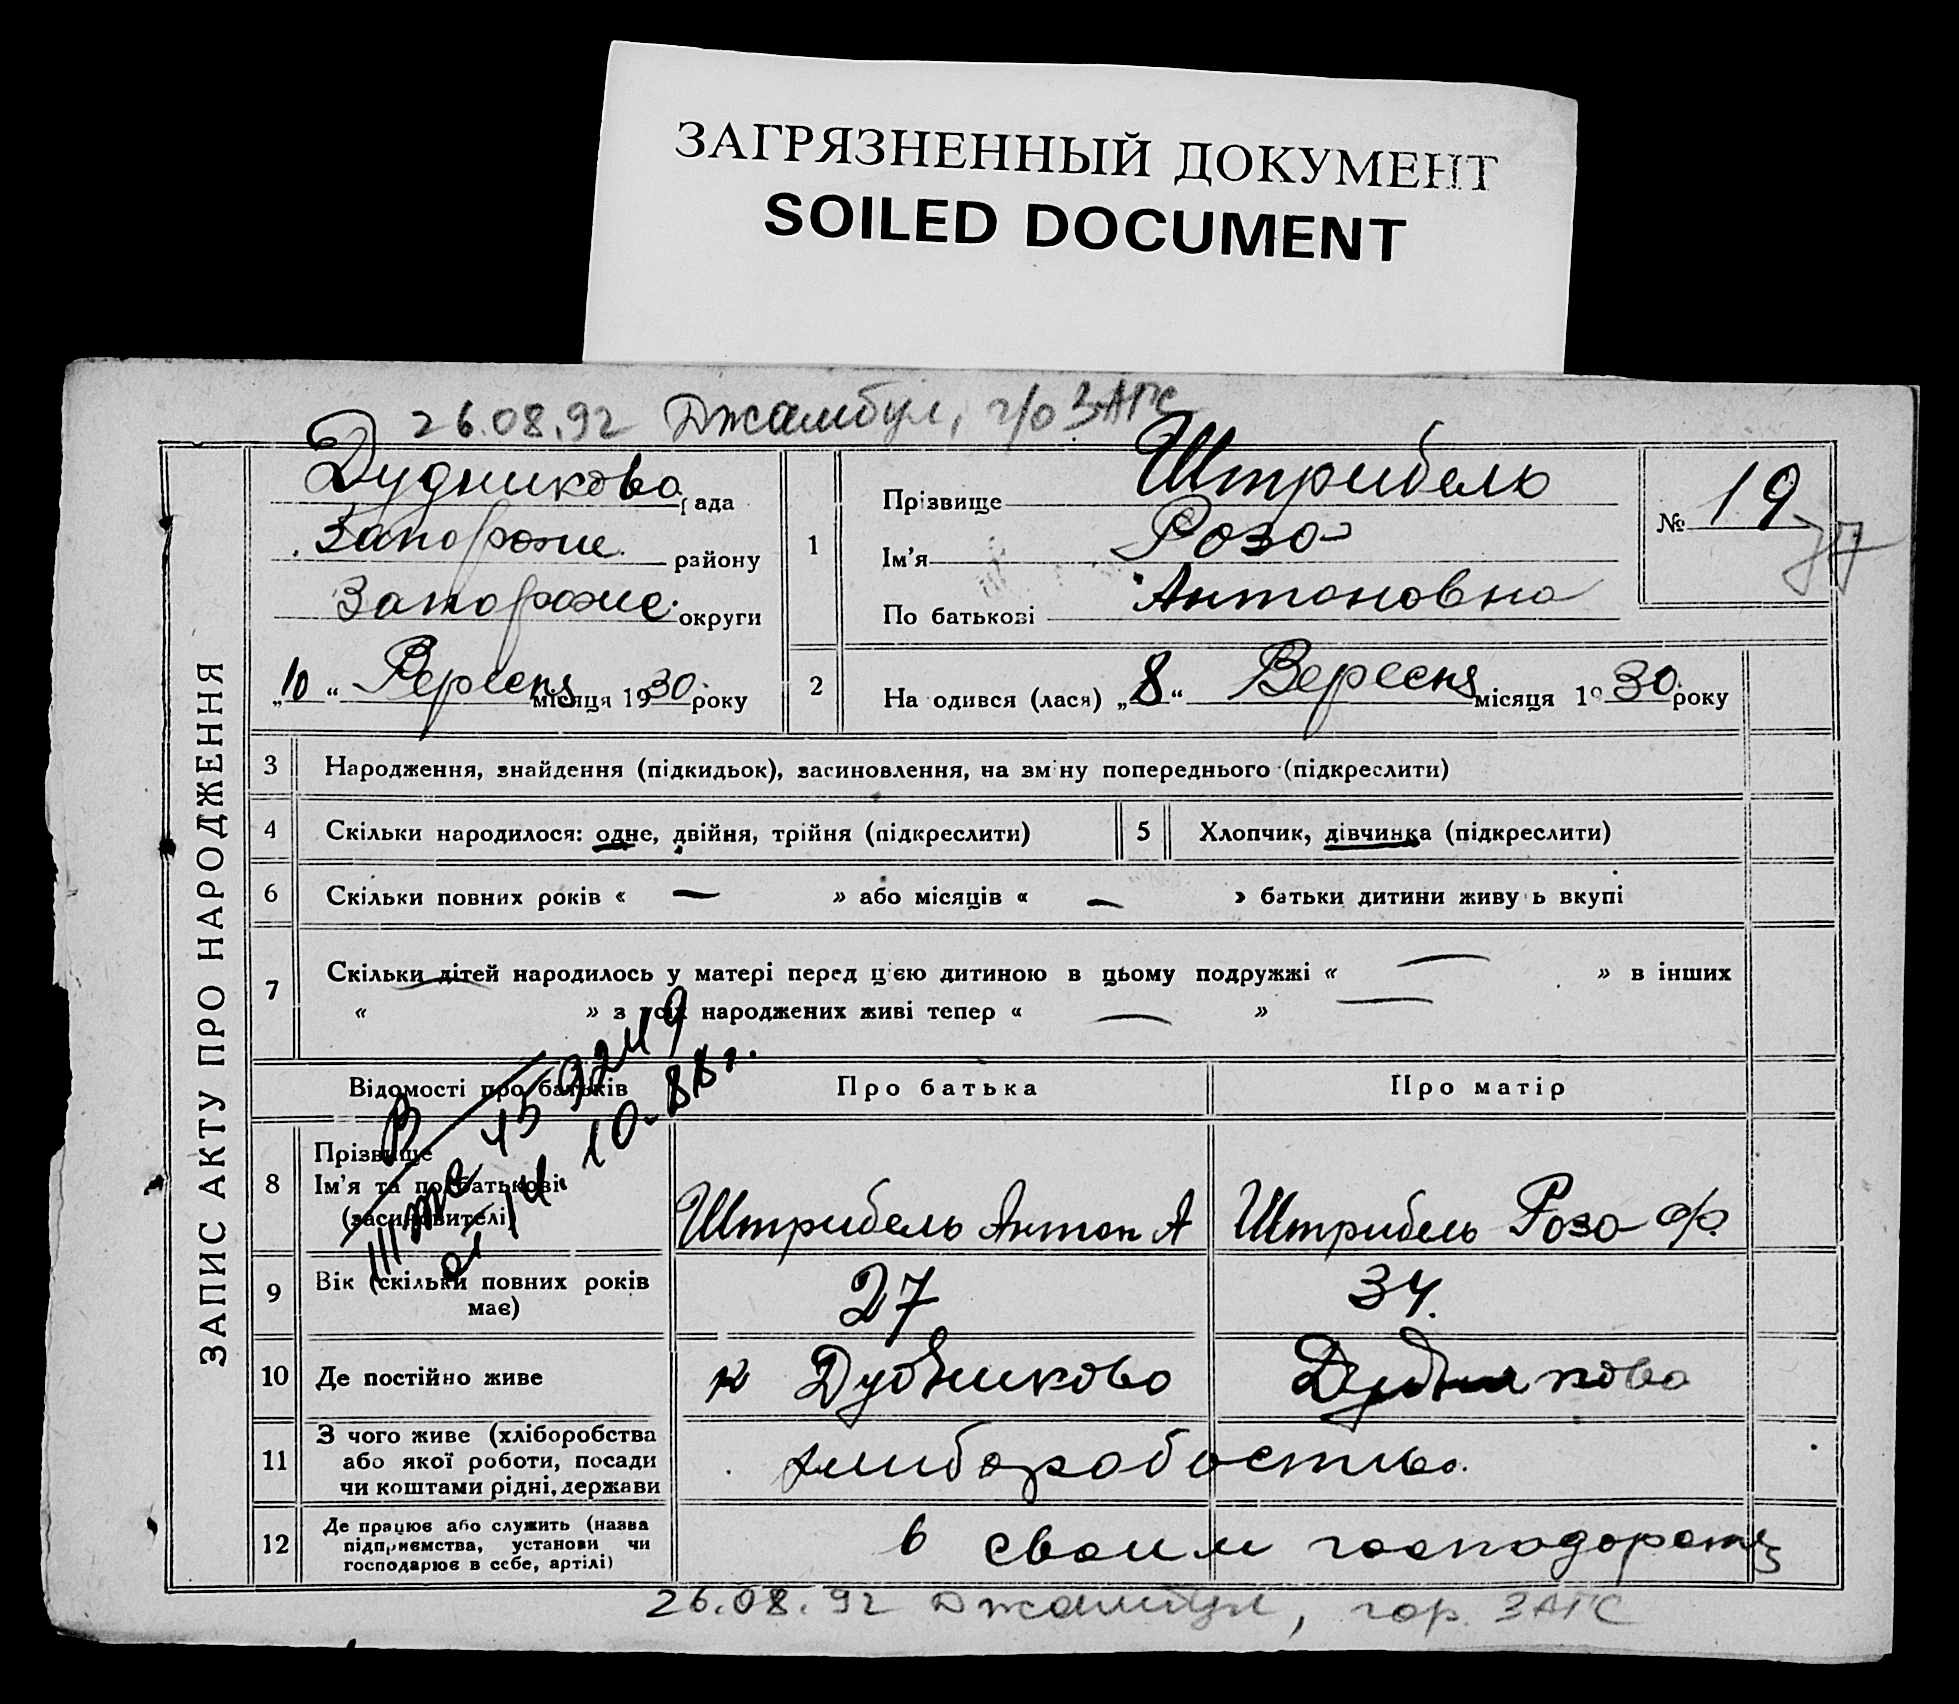 ЗАГРЯЗНЕННЫЙ ДОКУМЕНТ
SOILED DOCUMENT
26.08.92 Джамбул, г/о ЗАГС
ЗАПИС АКТУ ПРО НАРОДЖЕННЯ
Дудниково рада
Запороже району
Запороже округи
„10“ Вересня місяця 1930 року
1
Прізвище Штрибель
Ім'я Роза
По батькові Антоновна
№ 19
2
На одився (лася) „8“ Вересня місяця 1930 року
3 Народження, знайдення (підкидьок), засиновлення, на зміну попереднього (підкреслити)
4 Скільки народилося: одне, двійня, трійня (підкреслити)
5 Хлопчик, дівчинка (підкреслити)
6 Скільки повних років « — » або місяців « — » батьки дитини живуть вкупі
7 Скільки дітей народилось у матері перед цією дитиною в цьому подружжі « — » в інших
« » з усіх народжених живі тепер « — »
Відомості про батьків Про батька Про матір
8 Прізвище
Ім'я та по батькові
(засиновителі)
Штрибель Антон А
Штрибель Роза Ф.
10-88 г.
9 Вік (скільки повних років
має)
27
34.
10 Де постійно живе
к Дудниково
Дудниково
11 З чого живе (хліборобства
або якої роботи, посади
чи коштами рідні, держави
12 Де працює або служить (назва
підприємства, установи чи
господарює в себе, артілі)
в своим
26.08.92 Джамбул, гор. ЗАГС